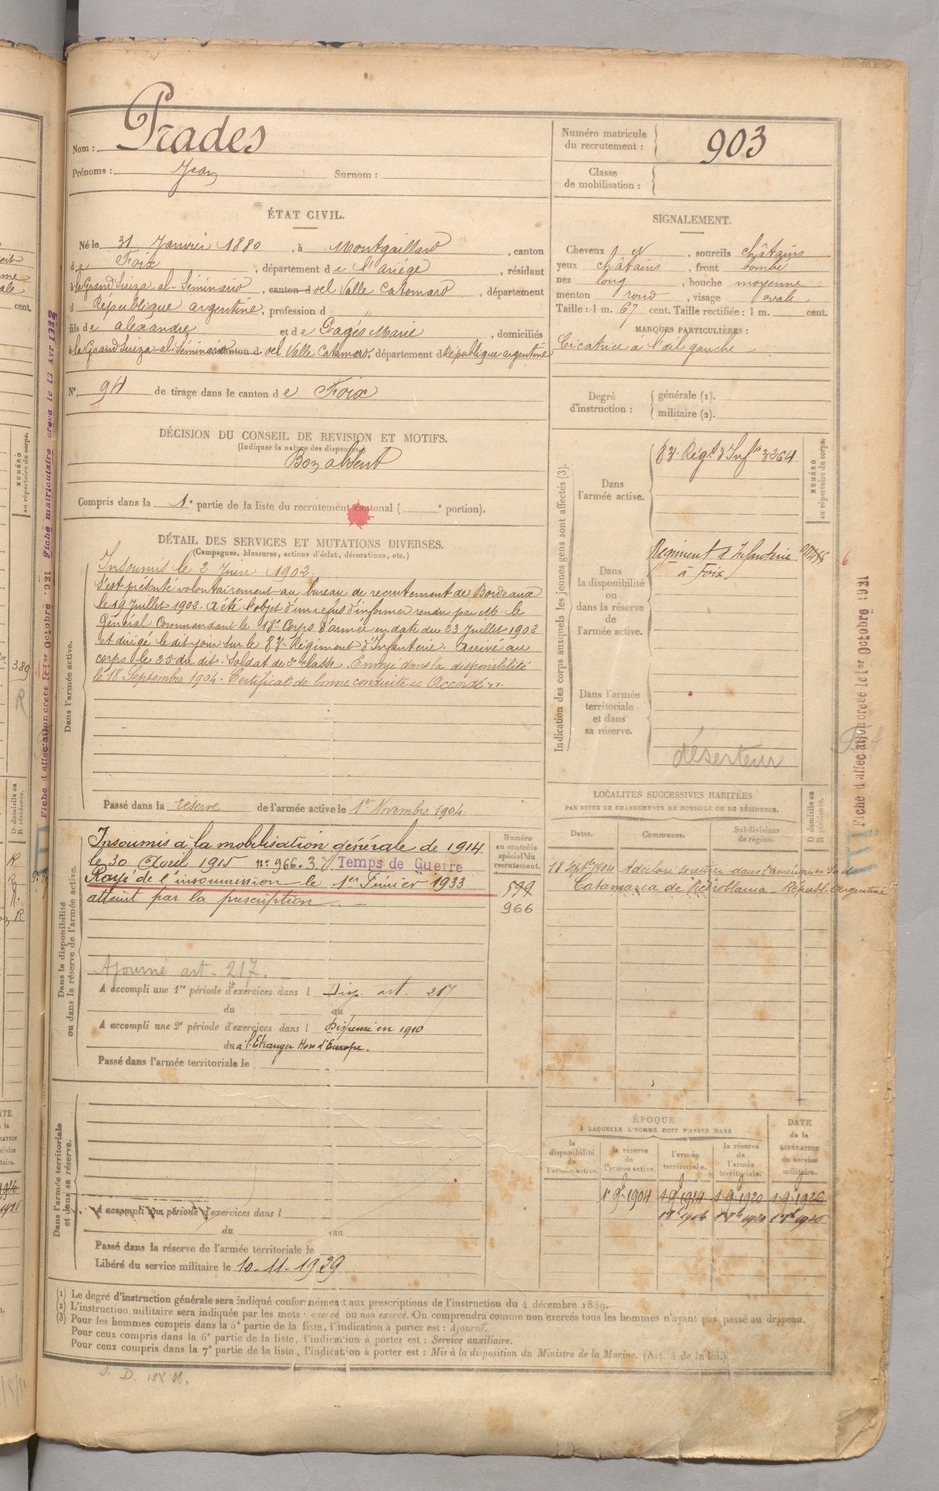 Nom : Prades
Prénoms : Jean Surnom :
Numéro matricule du recrutement : 903
Classe de mobilisation :
ÉTAT CIVIL.
Né le 31 Janvier 1880, à Montgaillard, canton
de Foix, département de l'ariège, résidant
à la Grand Suiza al-Séminard, canton d del Valle Catamard, département
d République argentine, profession d
fils de alexandre et de Pagès Marie, domiciliés
à la Grand Suiza al-Séminard canton d del Valle Catamard, département d République argentine
N° 94 de tirage dans le canton de Foix
SIGNALEMENT.
Cheveux , sourcils châtains
yeux châtains, front bombé
nez long, bouche moyenne
menton rond, visage ovale
Taille : 1 m. 67 cent. Taille rectifiée : 1 m. cent.
MARQUES PARTICULIÈRES :
Cicatrice à l'œil gauche
Degré d'instruction : générale (1).
militaire (2).
DÉCISION DU CONSEIL DE REVISION ET MOTIFS.
(Indiquer la nature des dispenses)
Bon absent
Compris dans la 1e partie de la liste du recrutement cantonal ( e portion).
DÉTAIL DES SERVICES ET MUTATIONS DIVERSES.
(Campagnes, blessures, actions d'éclat, décorations, etc.)
Dans l'armée active.
Insoumis le 2 Juin 1902.
S'est présenté volontairement au bureau de recrutement de Bordeaux
le 19 Juillet 1902. A été l'objet d'un refus d'informer rendu par M. le
Général Commandant le 18e Corps d'armée en date du 23 Juillet 1902
et dirigé le dit jour sur le 83e Régiment d'Infanterie. Arrivé au
corps le 25 du dit. Soldat de 2e classe. Envoyé dans la disponibilité
le 18 Septembre 1904. Certificat de bonne conduite Accordé.
Passé dans la réserve de l'armée active le 1er Novembre 1904.
Indication des corps auxquels les jeunes gens sont affectés (3).
NUMÉRO au répertoire du corps.
Dans l'armée active. 83e Régt d'Infie 3264
Dans la disponibilité ou dans la réserve de l'armée active. Régiment d'Infanterie à Foix
Dans l'armée territoriale et dans sa réserve.
déserteur
Dans la disponibilité ou dans la réserve de l'armée active.
Insoumis à la mobilisation générale de 1914
le 30 Avril 1915 n° 966.3. Temps de Guerre
Rayé de l'insoumission le 1er Février 1933
atteint par la prescription
Numéro au contrôle spécial du recrutement.
592
966
Ajourné art. 217.
A accompli une 1re période d'exercices dans l Disp. art. 217
du au
A accompli une 2e période d'exercices dans l Dispensé en 1910
du à l'Etranger Hors d'Europe.
Passé dans l'armée territoriale le
LOCALITÉS SUCCESSIVES HABITÉES
PAR SUITE DE CHANGEMENTS DE DOMICILE OU DE RÉSIDENCE.
Dates. Communes. Subdivisions de région. D domicile ou R résidence.
18 Septbre 1904
Catamarca de République Argentine
ÉPOQUE
À LAQUELLE L'HOMME DOIT PASSER DANS
la disponibilité de l'armée active. la réserve de l'armée active. l'armée territoriale. la réserve de l'armée territoriale. DATE de la LIBÉRATION du service militaire.
1er 9bre 1904
Dans l'armée territoriale et dans sa réserve.
A accompli une période d'exercices dans l
du au
Passé dans la réserve de l'armée territoriale le
Libéré du service militaire le 10-11-1929
(1) Le degré d'instruction générale sera indiqué conformément aux prescriptions de l'instruction du 4 décembre 1889.
(2) L'instruction militaire sera indiquée par les mots : exercé ou non exercé. On comprendra comme non exercés tous les hommes n'ayant pas passé au drapeau.
(3) Pour les hommes compris dans la 5e partie de la liste, l'indication à porter est : Ajourné.
Pour ceux compris dans la 6e partie de la liste, l'indication à porter est : Service auxiliaire.
Pour ceux compris dans la 7e partie de la liste, l'indication à porter est : Mis à la disposition du Ministre de la Marine. (Art. 4 de la loi.)
Fiche d'affectation créée le 1er Octobre 1921
Fiche d'affectation créée le 1er Octobre 1921 Fiche matriculaire créée le 13 Avr